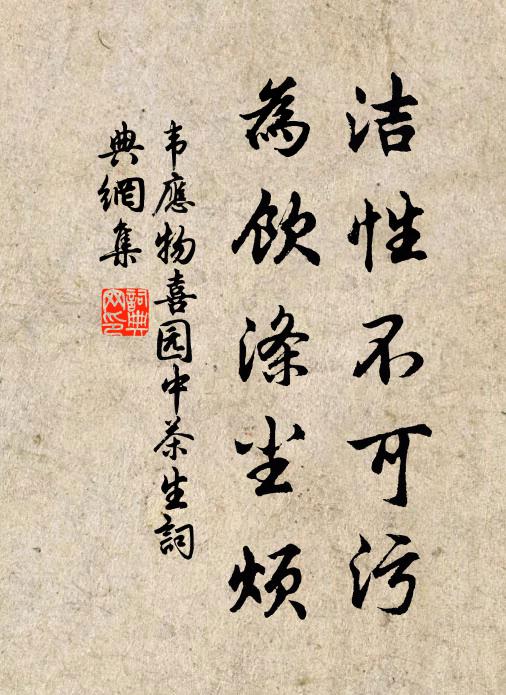 洁性不可污
為飲涤尘煩
韦應物喜园中茶生詞
典網集
詞典網印